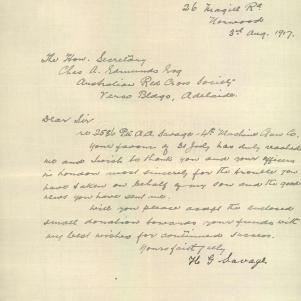 26 Magill Rd
Norwood
3rd Aug. 1917.
The Hon. Secretary
Chas A. Edmunds Esq
Australian Red Cross Society
Verco Bldgs, Adelaide.
Dear Sir
re 2556 Pte A.A. Savage - 4th Machine Gun Co.
Your favour of 31 July has duly reached
me and I wish to thank you and your officers
in London most sincerely for the trouble you
have taken on behalf of my son and the good
news you have sent me.
Will you please accept the enclosed
small donation towards your funds with
my best wishes for continued success.
Yours faithfully
H G Savage